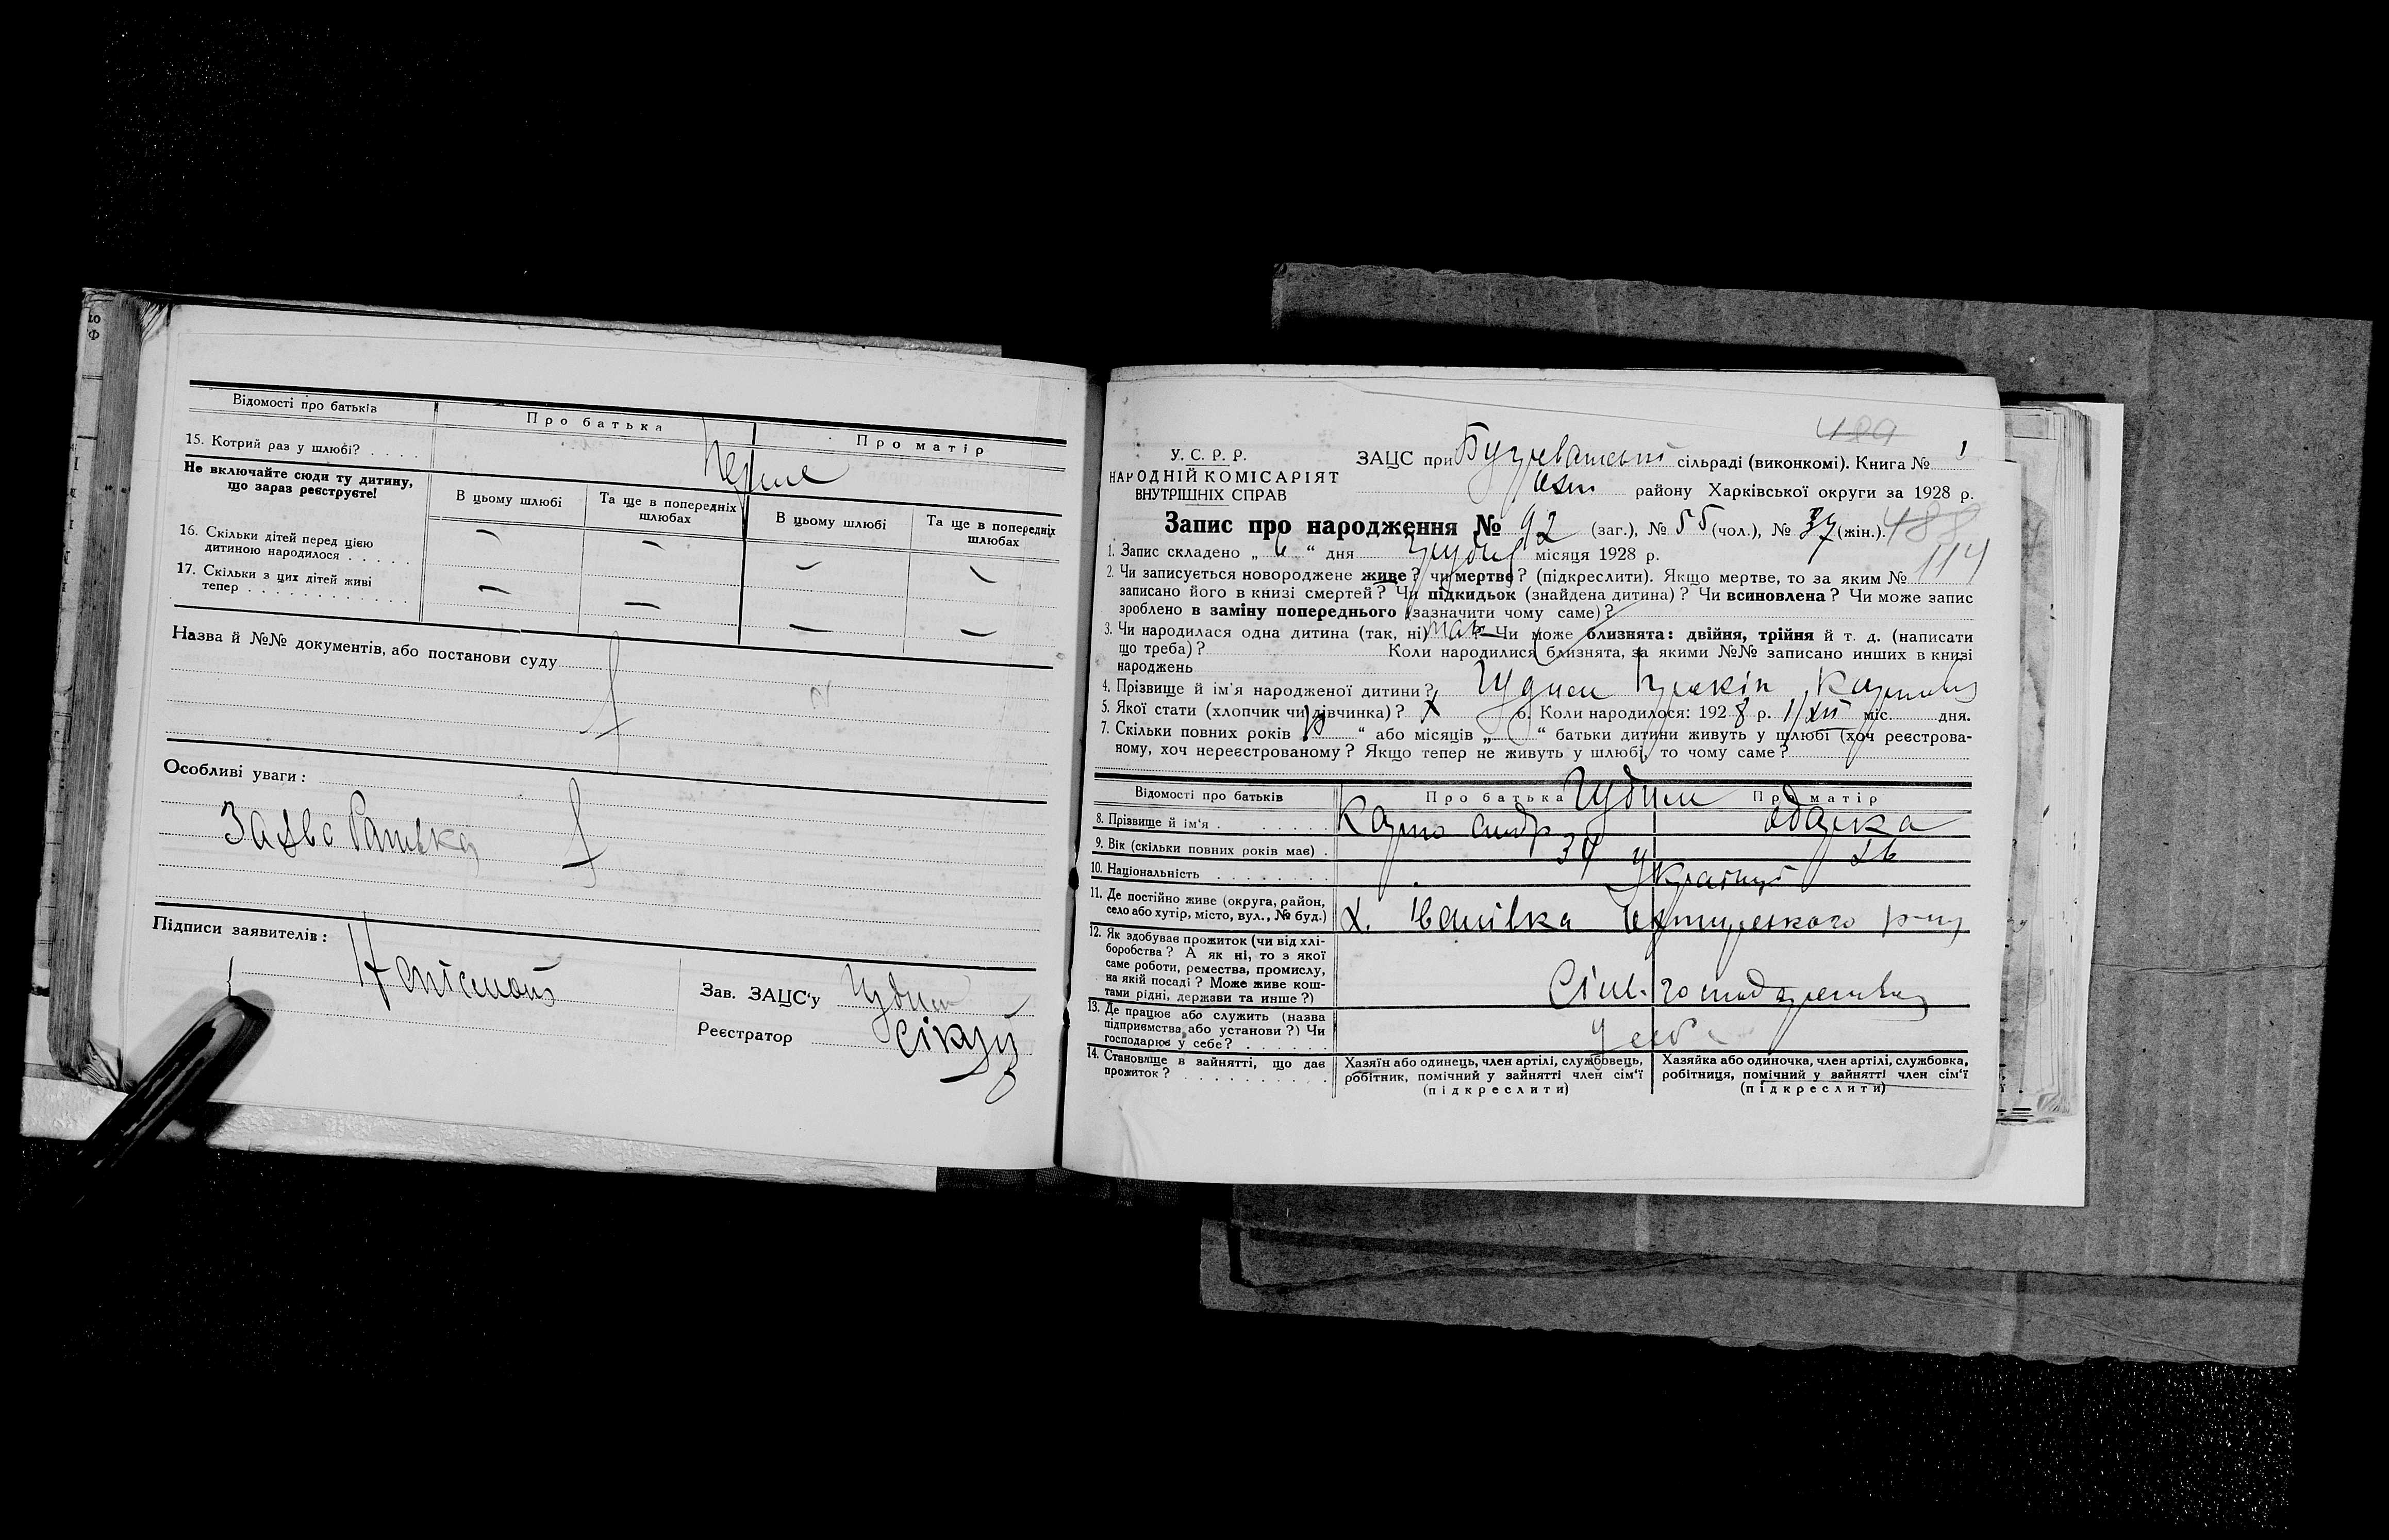 Відомості про батьків
Про батька
Про матір
15. Котрий раз у шлюбі? . . . .
Перше
Не включайте сюди ту дитину,
що зараз реєструєте!
В цьому шлюбі
Та ще в попередніх
шлюбах
В цьому шлюбі
Та ще в попередніх
шлюбах
16. Скільки дітей перед цією
дитиною народилося . . . . .
— — — —
17. Скільки з цих дітей живі
тепер . . . . . . . . . . . .
— — — —
Назва й №№ документів, або постанови суду
Особливі уваги:
Підписи заявителів:
Зав. ЗАЦС'у
Реєстратор
У. С. Р. Р.
НАРОДНІЙ КОМІСАРІЯТ
ВНУТРІШНІХ СПРАВ
ЗАЦС при сільраді (виконкомі). Книга № 1
району Харківської округи за 1928 р.
Запис про народження № 92 (заг.), № 55 (чол.), № 37 (жін.). 488
1. Запис складено „ 6 “ дня Грудня місяця 1928 р.
114
2. Чи записується новороджене живе? чи мертве? (підкреслити). Якщо мертве, то за яким №
записано його в книзі смертей? Чи підкидьок (знайдена дитина)? Чи всиновлена? Чи може запис
зроблено в заміну попереднього (зазначити чому саме)?
3. Чи народилася одна дитина (так, ні) так ? Чи може близнята: двійня, трійня й т. д. (написати
що треба)? Коли народилися близнята, за якими №№ записано инших в книзі
народжень
4. Прізвище й ім'я народженої дитини?
5. Якої стати (хлопчик чи дівчинка)? х 6. Коли народилося: 1928 р. 1/XII міс. дня.
7. Скільки повних років “ або місяців „ “ батьки дитини живуть у шлюбі (хоч реєстрова-
ному, хоч нереєстрованому? Якщо тепер не живуть у шлюбі, то чому саме?
Відомості про батьків
Про батька
Про матір
8. Прізвище й ім'я . . . . . . . .
Одарка
9. Вік (скільки повних років має) .
34
26
10. Національність . . . . . . . .
Українці
11. Де постійно живе (округа, район,
село або хутір, місто, вул., № буд.)
х. Іванівка
12. Як здобуває прожиток (чи від хлі-
боробства? А як ні, то з якої
саме роботи, ремества, промислу,
на якій посаді? Може живе кош-
тами рідні, держави та инше?)
13. Де працює або служить (назва
підприємства, або установи?) Чи
господарює у себе? . . . . . .
У себе
14. Становище в зайнятті, що дає
прожиток? . . . . . . . . . .
Хазяїн або одинець, член артілі, службовець,
робітник, помічний у зайнятті член сім'ї
(підкреслити)
Хазяйка або одиночка, член артілі, службовка,
робітниця, помічний у зайнятті член сім'ї
(підкреслити)